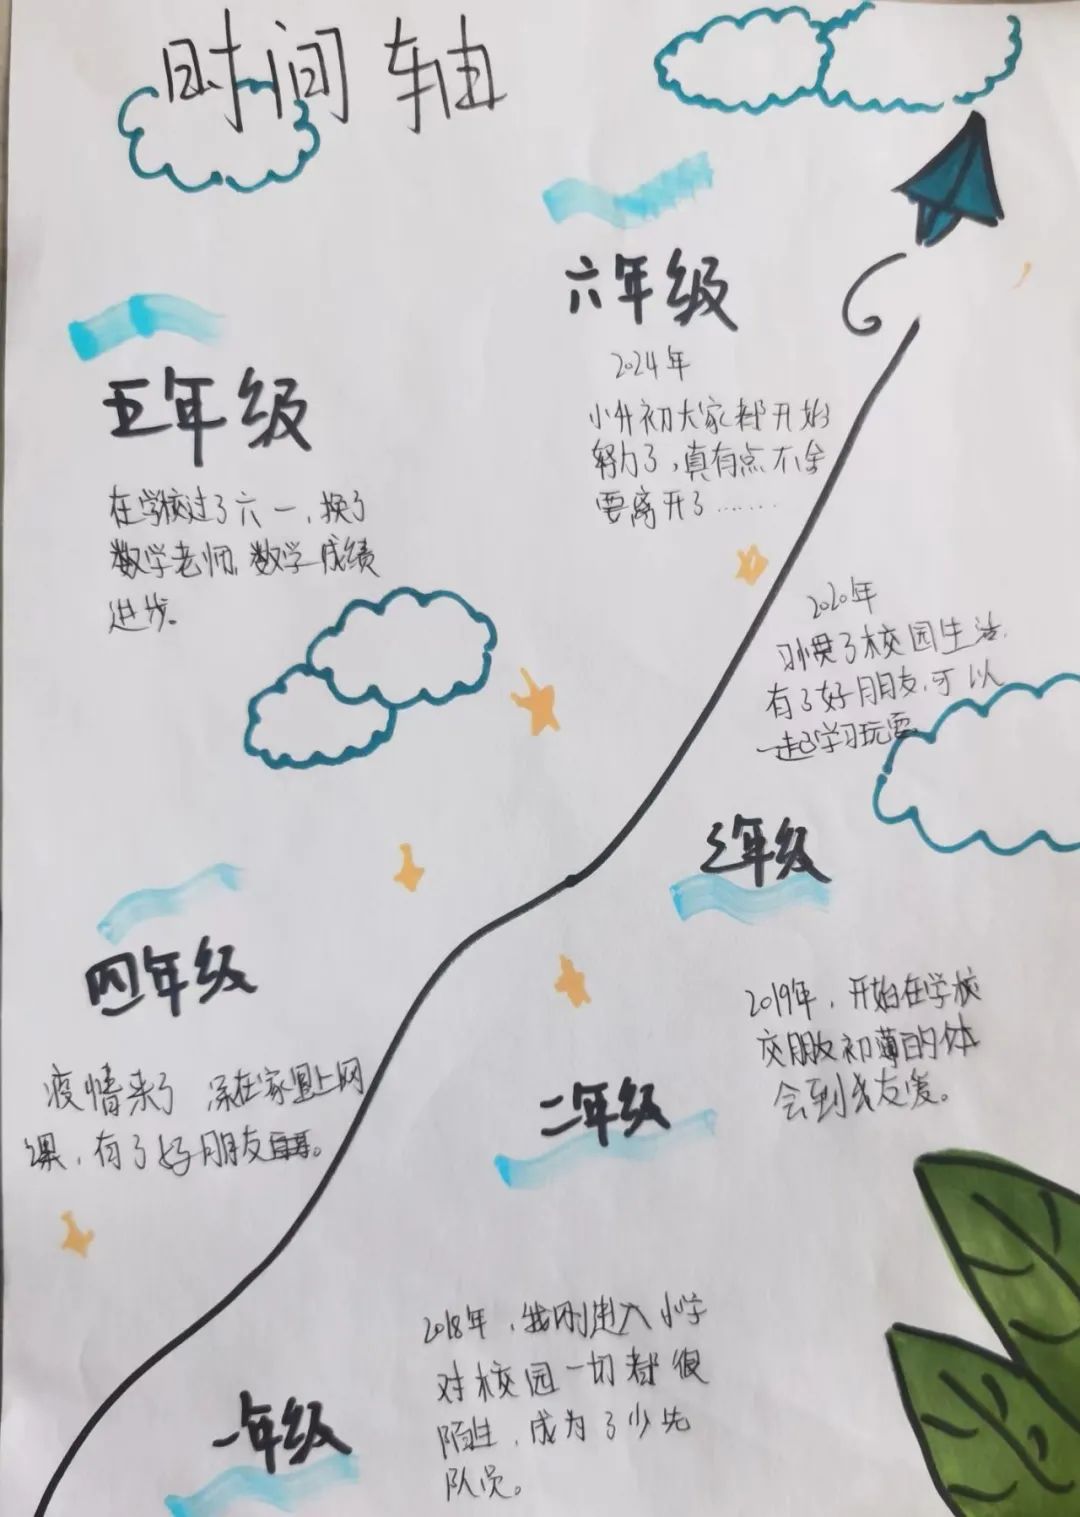 时间轴
六年级
2024年
小升初大家都开始
努力了,真有点不舍
要离开了……
五年级
在学校过了六一,换了
数学老师,数学成绩
进步。
2020年
习惯了校园生活
有了好朋友,可以
一起学习玩耍
三年级
四年级
疫情来了 在家里上网
课,有了好朋友
2019年,开始在学校
交朋友初薄的体
会到友爱。
二年级
2018年,我刚进入小学
对校园一切都很
陌生,成为了少先
队员。
一年级